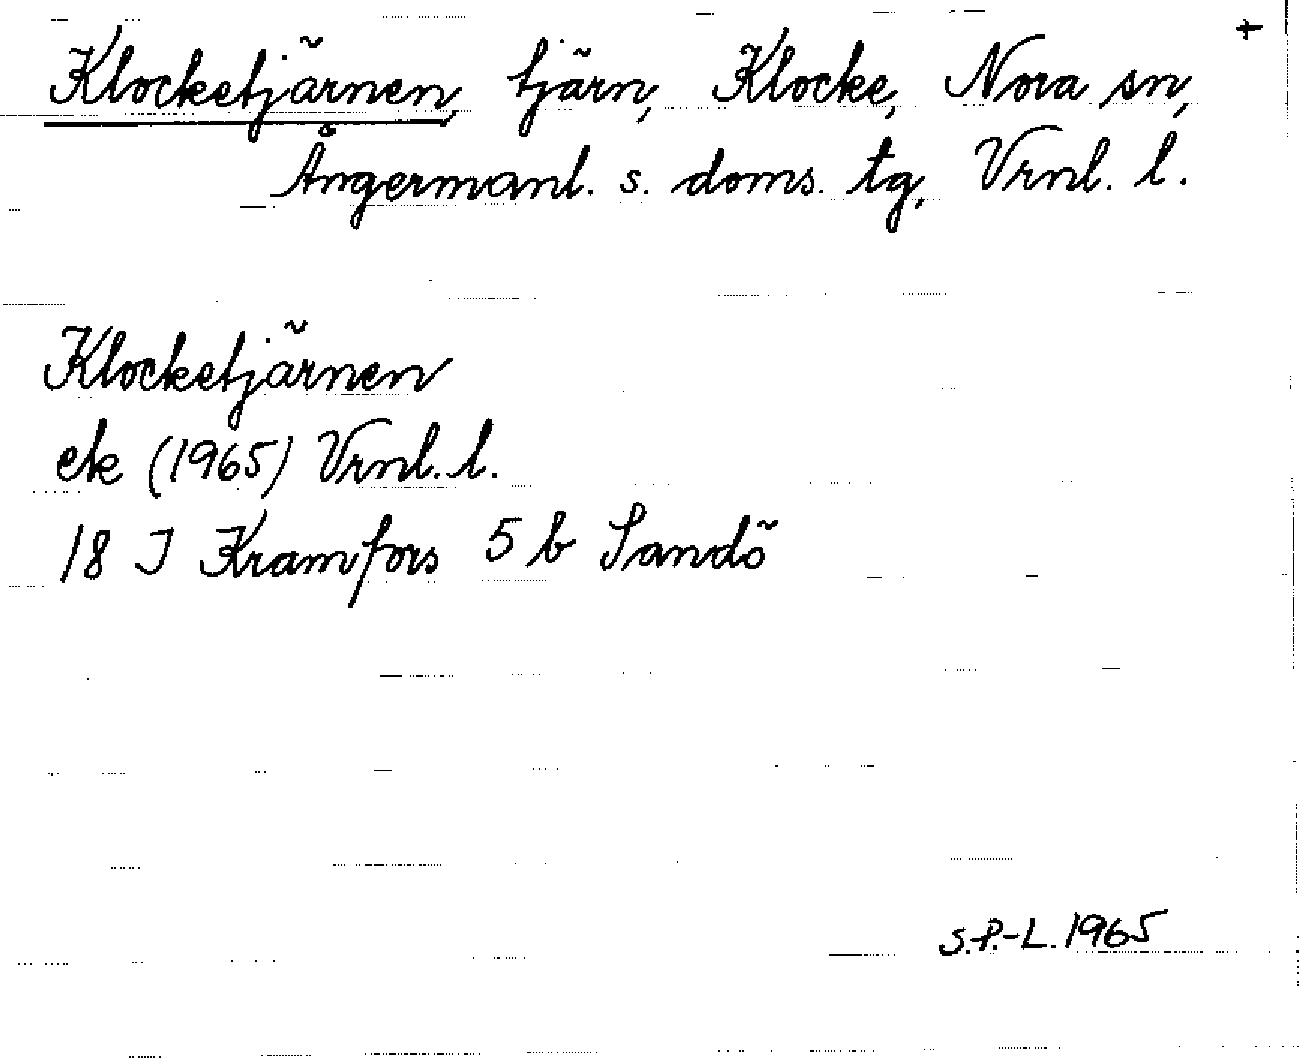 +
Klocketjärnen, tjärn, Klocke, Nora sn,
Ångermanl. s. doms. tg, Vrnl. l.
Klocketjärnen
ek (1965) Vrnl. l.
18 J Kramfors 5 b Sandö
S.P.-L. 1965